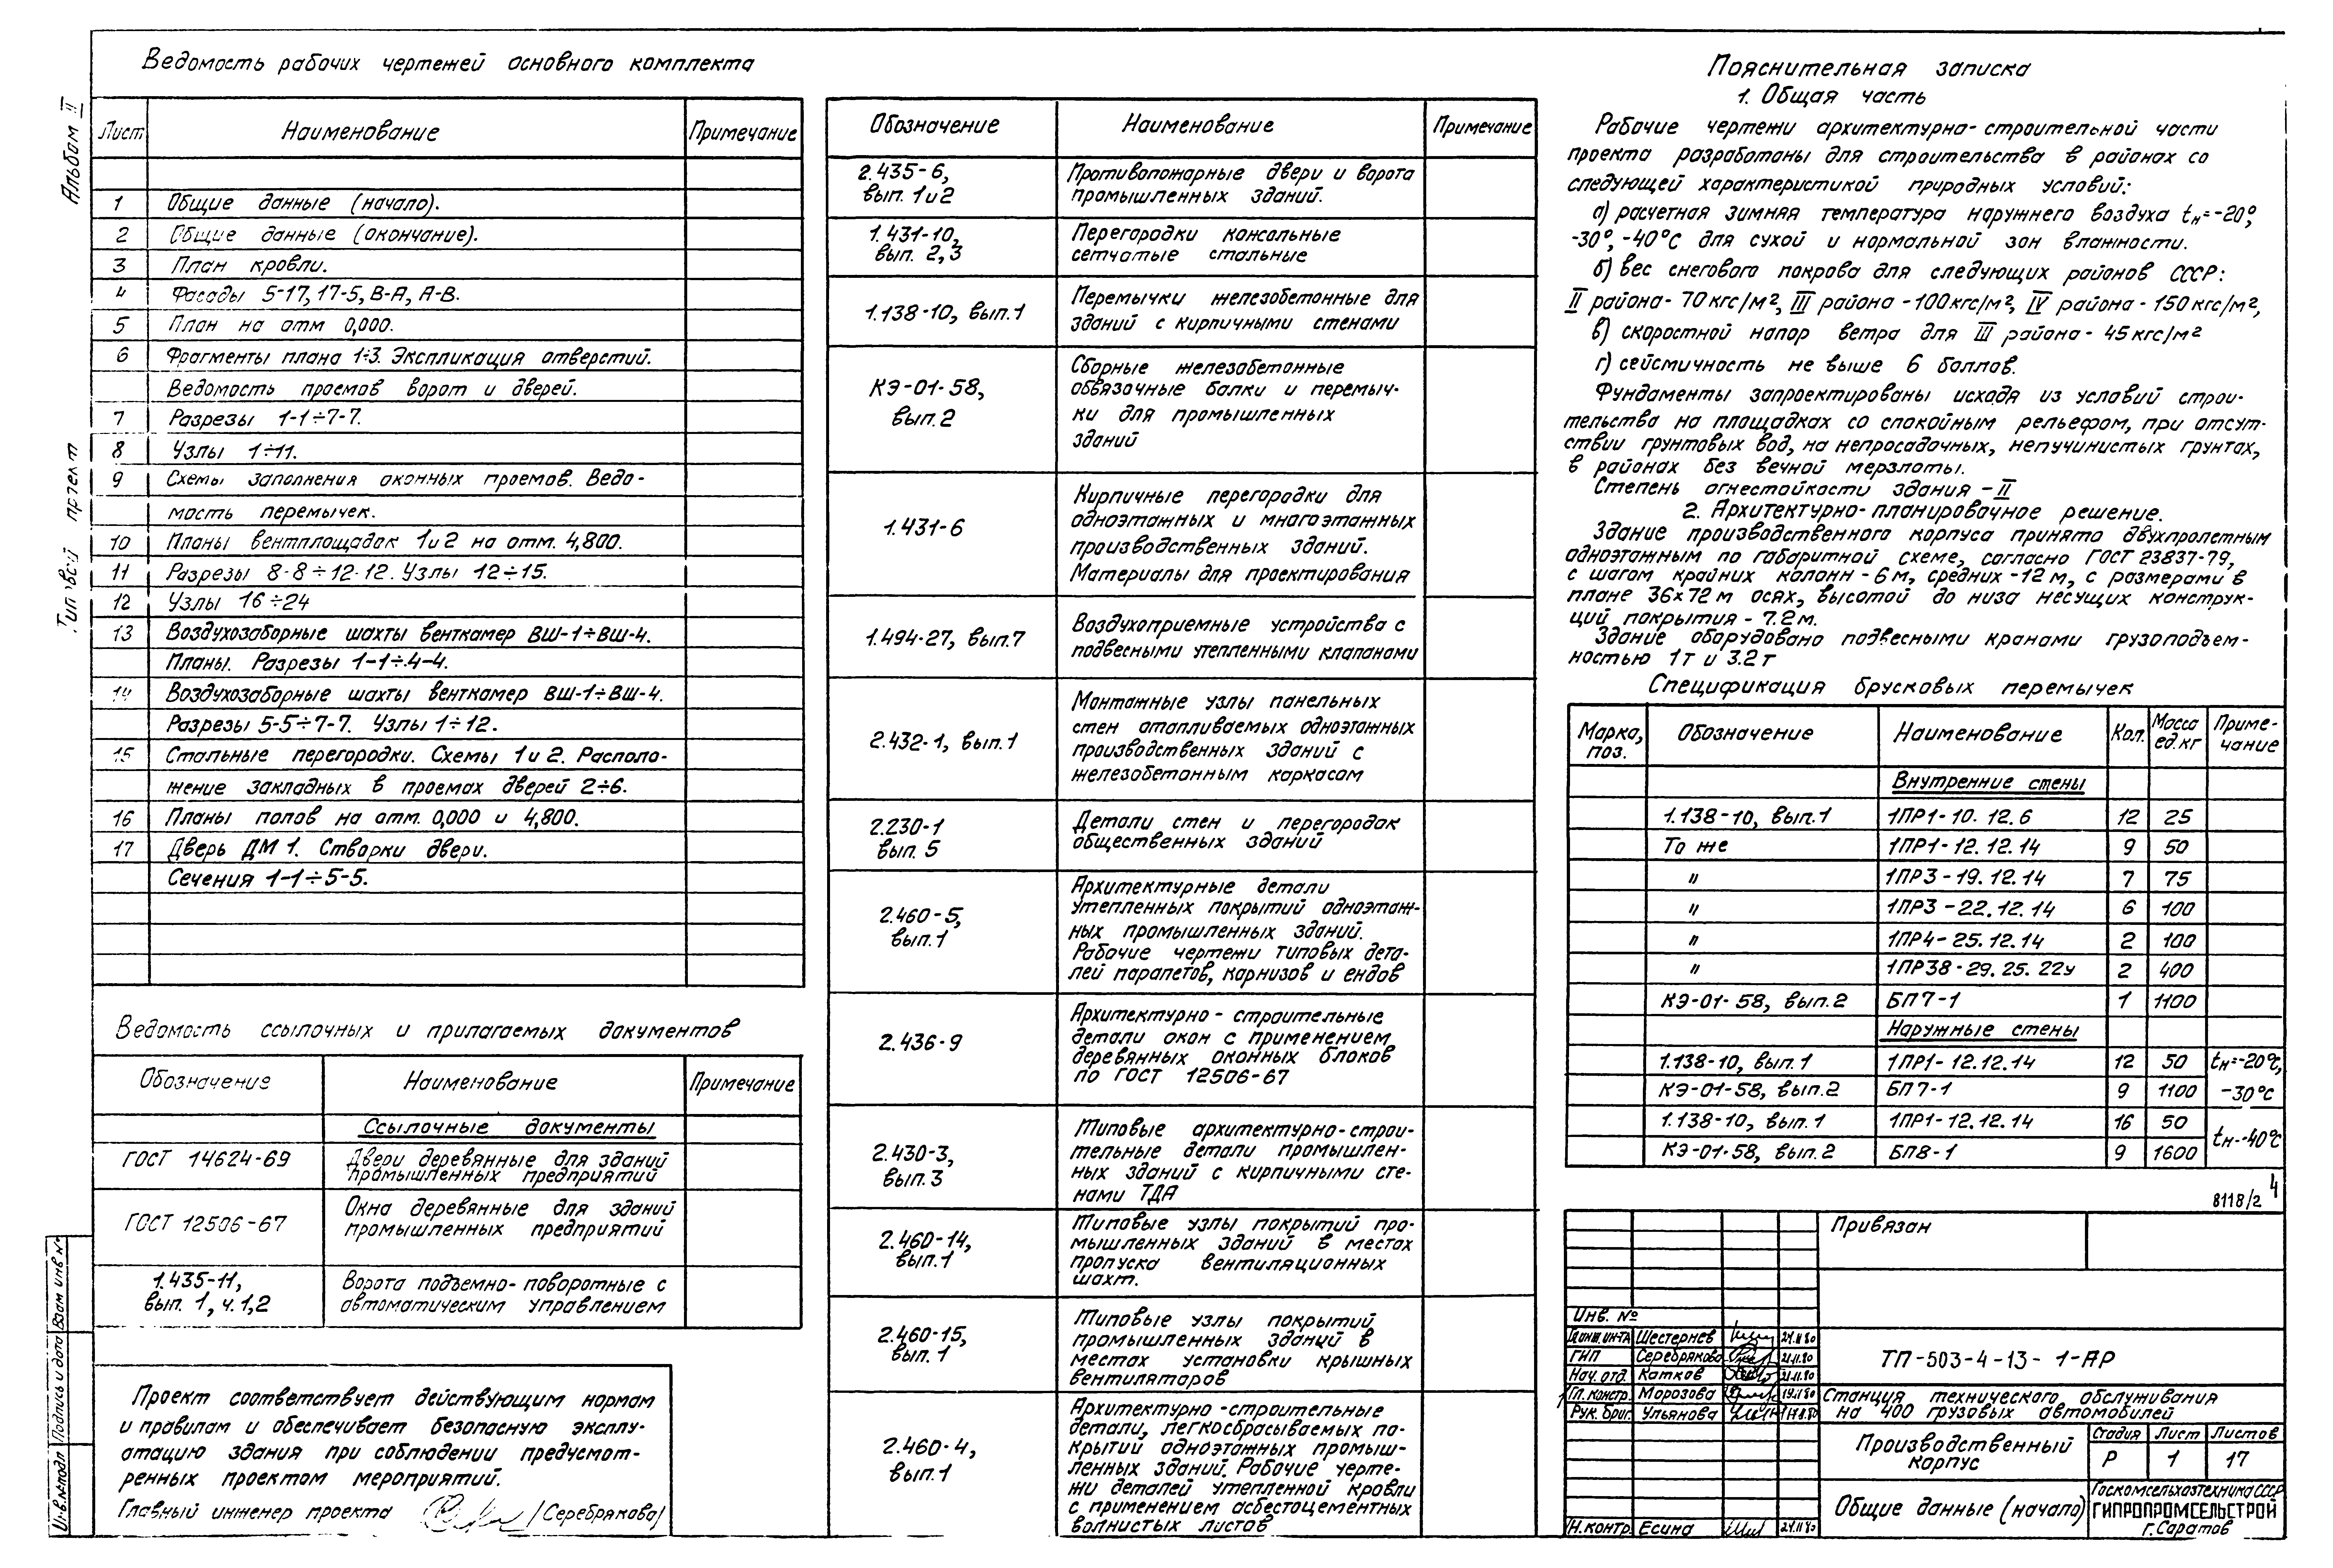 Альбом II
Типовой проект
Ведомость рабочих чертежей основного комплекта
Лист Наименование Примечание
1 Общие данные (начало).
2 Общие данные (окончание).
3 План кровли.
4 Фасады 5-17, 17-5, В-А, А-В.
5 План на отм 0,000.
6 Фрагменты плана 1÷3. Экспликация отверстий.
Ведомость проемов ворот и дверей.
7 Разрезы 1-1÷7-7.
8 Узлы 1÷11.
9 Схемы заполнения оконных проемов. Ведо-
мость перемычек.
10 Планы вентплощадок 1и2 на отм. 4,800.
11 Разрезы 8-8÷12-12. Узлы 12÷15.
12 Узлы 16÷24
13 Воздухозаборные шахты венткамер ВШ-1÷ВШ-4.
Планы. Разрезы 1-1÷4-4.
14 Воздухозаборные шахты венткамер ВШ-1÷ВШ-4.
Разрезы 5-5÷7-7. Узлы 1÷12.
15 Стальные перегородки. Схемы 1 и 2. Располо-
жение закладных в проемах дверей 2÷6.
16 Планы полов на отм. 0,000 и 4,800.
17 Дверь ДМ 1. Створки двери.
Сечения 1-1÷5-5.
Ведомость ссылочных и прилагаемых документов
Обозначение Наименование Примечание
Ссылочные документы
ГОСТ 14624-69 Двери деревянные для зданий
промышленных предприятий
ГОСТ 12506-67 Окна деревянные для зданий
промышленных предприятий
1.435-11, Ворота подъемно-поворотные с
вып. 1, ч.1,2 автоматическим управлением
Проект соответствует действующим нормам
и правилам и обеспечивает безопасную эксплу-
атацию здания при соблюдении предусмот-
ренных проектом мероприятий.
Главный инженер проекта /Серебрякова/
Инв.№подл Подпись и дата Взам инв №
Обозначение Наименование Примечание
2.435-6, Противопожарные двери и ворота
вып. 1и2 промышленных зданий.
1.431-10, Перегородки консольные
вып. 2,3 сетчатые стальные
1.138-10, вып.1 Перемычки железобетонные для
зданий с кирпичными стенами
КЭ-01-58, Сборные железобетонные
вып.2 обвязочные балки и перемыч-
ки для промышленных
зданий
1.431-6 Кирпичные перегородки для
одноэтажных и многоэтажных
производственных зданий.
Материалы для проектирования
1.494-27, вып.7 Воздухоприемные устройства с
подвесными утепленными клапанами
2.432-1, вып.1 Монтажные узлы панельных
стен отапливаемых одноэтажных
производственных зданий с
железобетонным каркасом
2.230-1 Детали стен и перегородок
вып. 5 общественных зданий
2.460-5, Архитектурные детали
вып.1 утепленных покрытий одноэтаж-
ных промышленных зданий.
Рабочие чертежи типовых дета-
лей парапетов, карнизов и ендов
2.436-9 Архитектурно-строительные
детали окон с применением
деревянных оконных блоков
по ГОСТ 12506-67
2.430-3, Типовые архитектурно-строи-
вып.3 тельные детали промышлен-
ных зданий с кирпичными сте-
нами ТДА
2.460-14, Типовые узлы покрытий про-
вып.1 мышленных зданий в местах
пропуска вентиляционных
шахт.
2.460-15, Типовые узлы покрытий
вып.1 промышленных зданий в
местах установки крышных
вентиляторов
2.460-4, Архитектурно-строительные
вып.1 детали, легкосбрасываемых по-
крытий одноэтажных промыш-
ленных зданий. Рабочие черте-
жи деталей утепленной кровли
с применением асбестоцементных
волнистых листов
Пояснительная записка
1. Общая часть
Рабочие чертежи архитектурно-строительной части
проекта разработаны для строительства в районах со
следующей характеристикой природных условий:
а) расчетная зимняя температура наружнего воздуха tн=-20°,
-30°, -40°С для сухой и нормальной зон влажности.
б) вес снегового покрова для следующих районов СССР:
II района - 70 кгс/м², III района - 100кгс/м², IV района - 150кгс/м²,
в) скоростной напор ветра для III района - 45 кгс/м²
г) сейсмичность не выше 6 баллов.
Фундаменты запроектированы исходя из условий строи-
тельства на площадках со спокойным рельефом, при отсут-
ствии грунтовых вод, на непросадочных, непучинистых грунтах,
в районах без вечной мерзлоты.
Степень огнестойкости здания - II
2. Архитектурно-планировочное решение.
Здание производственного корпуса принято двухпролетным
одноэтажным по габаритной схеме, согласно ГОСТ 23837-79,
с шагом крайних колонн - 6м, средних - 12 м, с размерами в
плане 36×72м осях, высотой до низа несущих конструк-
ций покрытия - 7.2 м.
Здание оборудовано подвесными кранами грузоподъем-
ностью 1т и 3.2т
Спецификация брусковых перемычек
Марка, поз. Обозначение Наименование Кол. Масса ед.кг Приме-чание
Внутренние стены
1.138-10, вып.1 1ПР1-10.12.6 12 25
То же 1ПР1-12.12.14 9 50
" 1ПР3-19.12.14 7 75
" 1ПР3-22.12.14 6 100
" 1ПР4-25.12.14 2 100
" 1ПР38-29.25.22у 2 400
КЭ-01-58, вып.2 БП7-1 1 1100
Наружные стены
1.138-10, вып.1 1ПР1-12.12.14 12 50 tн=-20°С,
КЭ-01-58, вып.2 БП7-1 9 1100 -30°С
1.138-10, вып.1 1ПР1-12.12.14 16 50 tн-40°С
КЭ-01-58, вып.2 БП8-1 9 1600
8118/2 4
Привязан
Инв. №
Шестернев 24.11.80
ГИП Серебрякова 21.11.80
Нач. отд. Катков 21.11.80
Гл. констр. Морозова 19.11.80
Рук. бриг. Ульянова
Н.контр. Есина 24.11.80
ТП-503-4-13-1-АР
Станция технического обслуживания
на 400 грузовых автомобилей
Производственный
корпус
Стадия Лист Листов
Р 1 17
Общие данные (начало)
Госкомсельхозтехника СССР
ГИПРОПРОМСЕЛЬСТРОЙ
г.Саратов